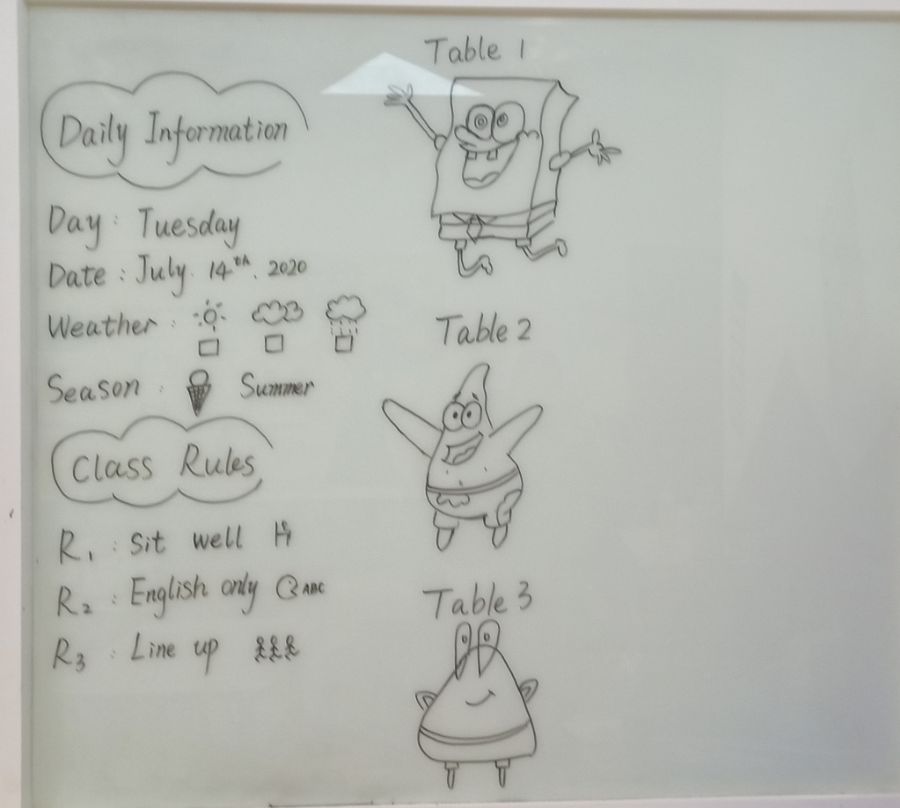 Daily Information
Day : Tuesday
Date : July. 14th. 2020
Weather :
Season : Summer
Class Rules
R1 : Sit well
R2 : English only ABC
R3 : Line up
Table 1
Table 2
Table 3